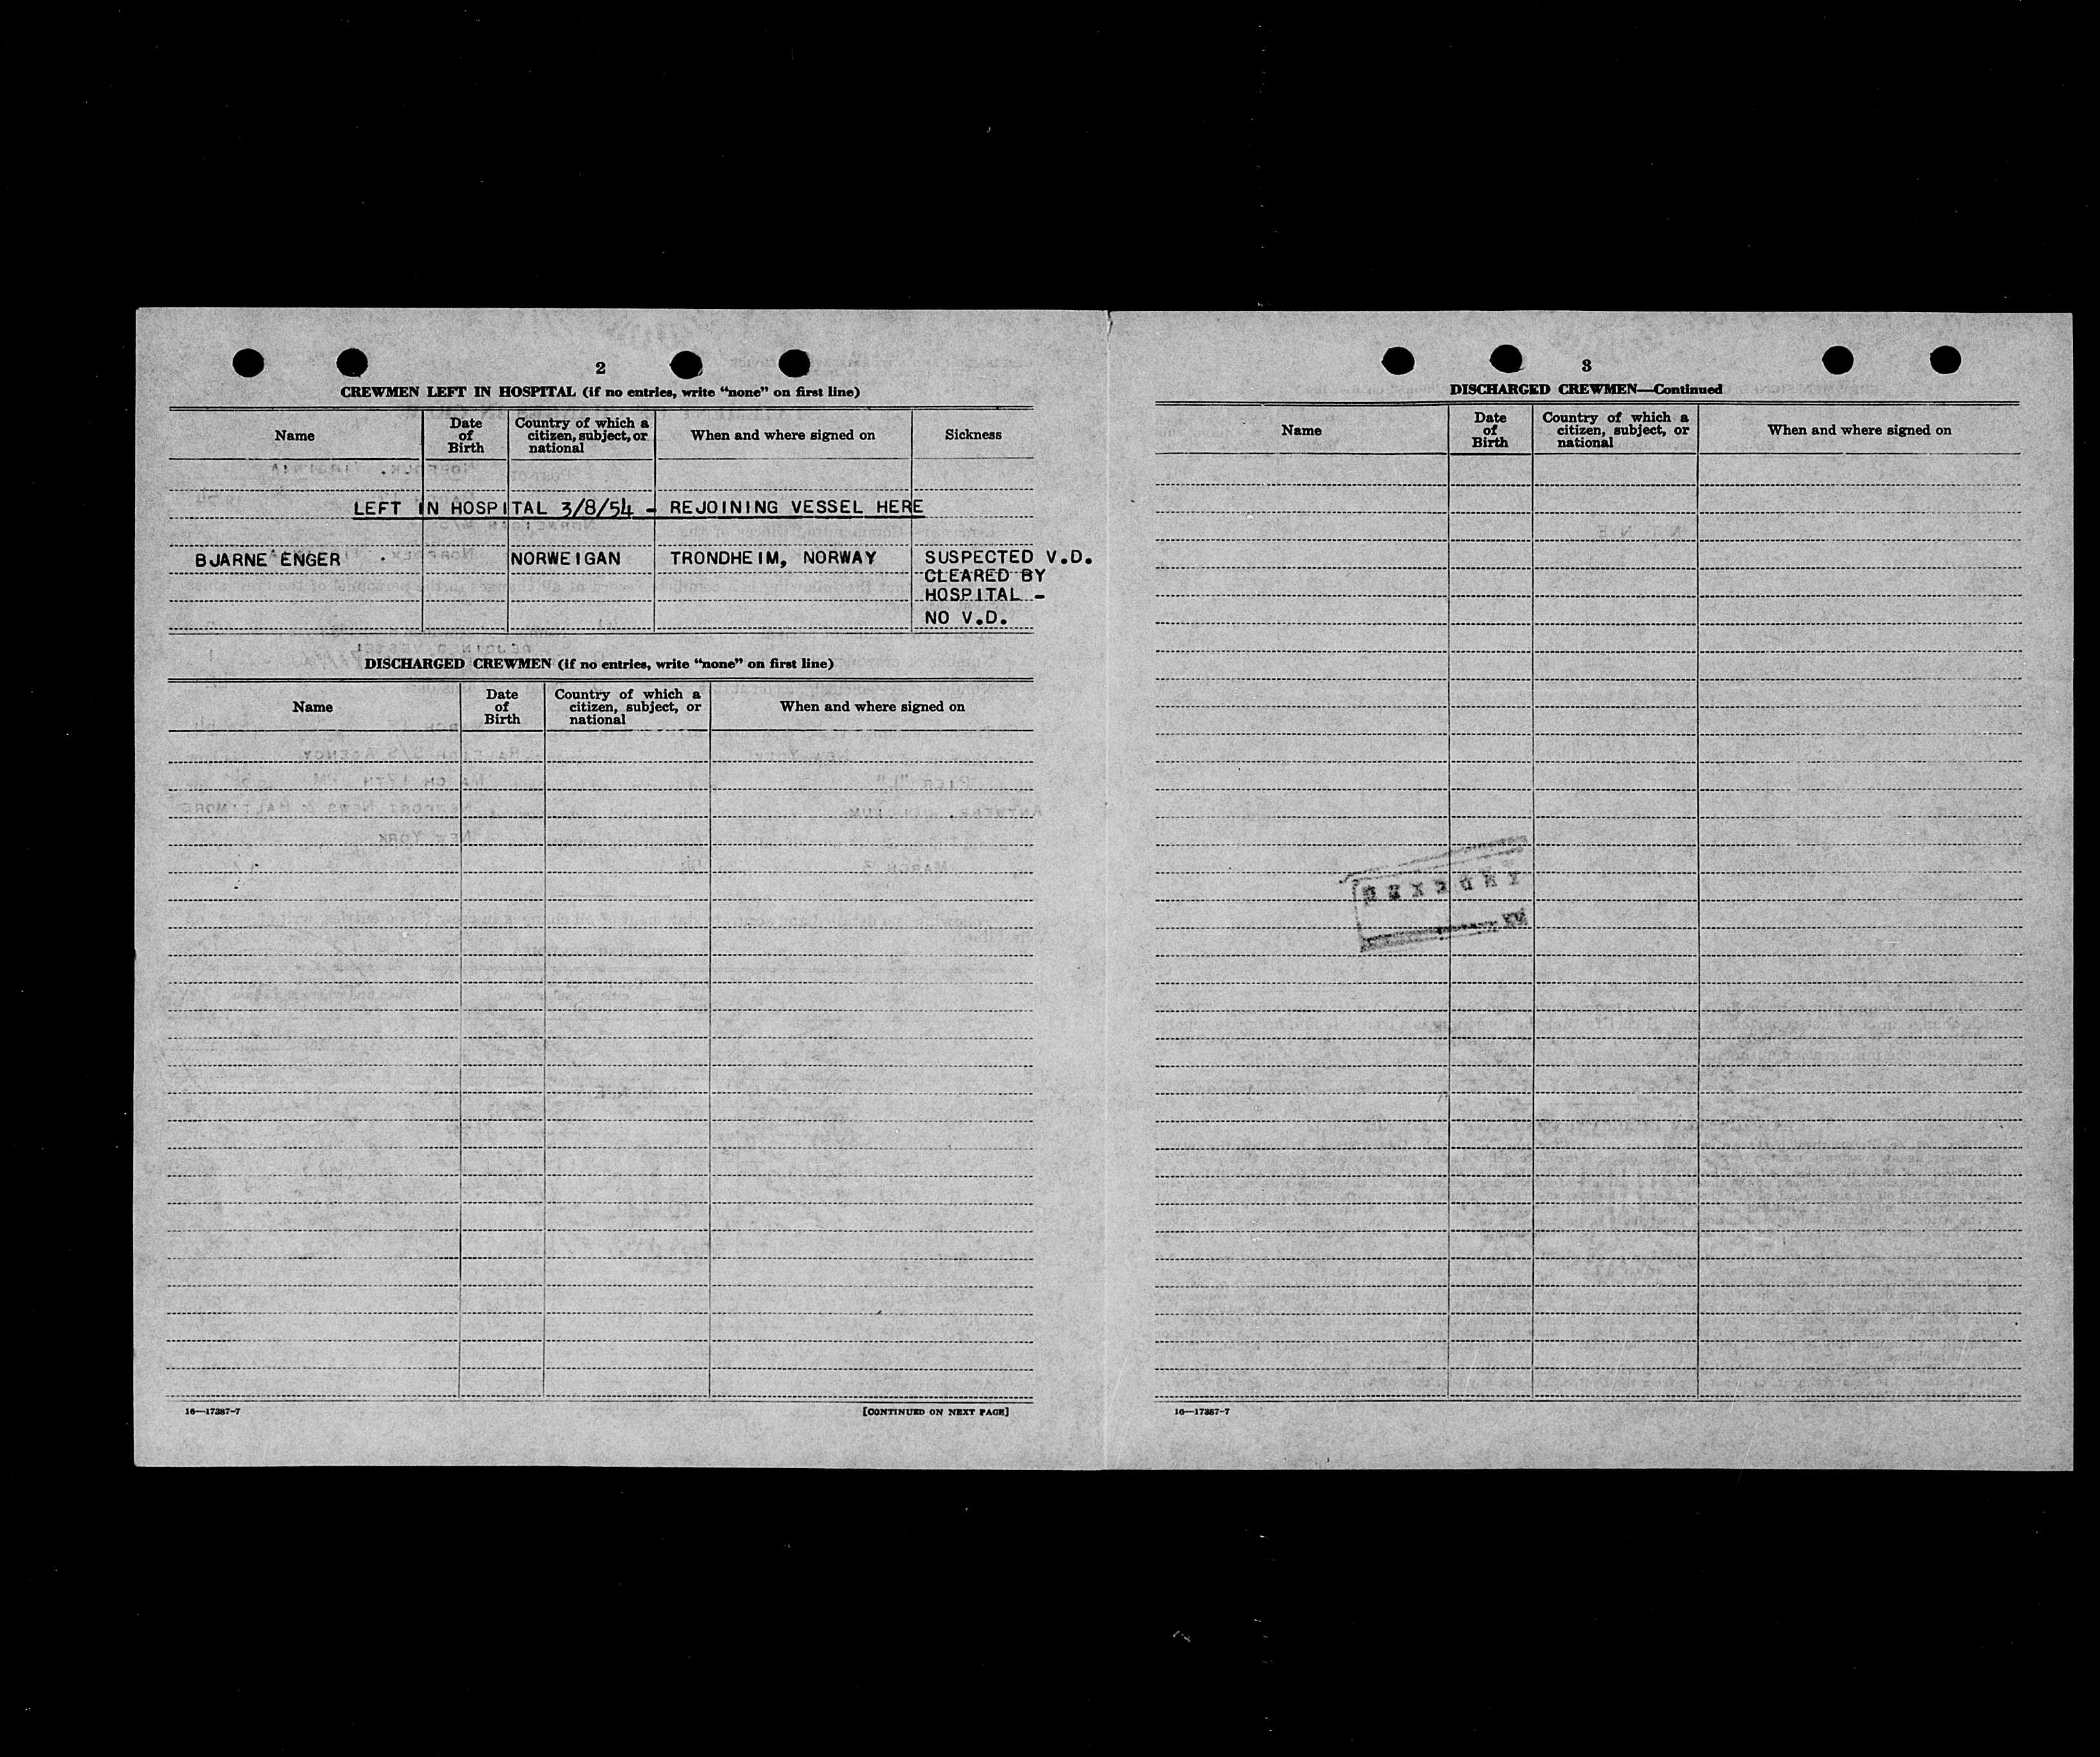 2
CREWMEN LEFT IN HOSPITAL (if no entries, write “none” on first line)
Name
Date of Birth
Country of which a citizen, subject, or national
When and where signed on
Sickness
LEFT IN HOSPITAL 3/8/54 - REJOINING VESSEL HERE
BJARNE ENGER NORWEIGAN TRONDHEIM, NORWAY SUSPECTED V.D.
CLEARED BY
HOSPITAL -
NO V.D.
DISCHARGED CREWMEN (if no entries, write “none” on first line)
Name
Date of Birth
Country of which a citizen, subject, or national
When and where signed on
16—17387-7
[CONTINUED ON NEXT PAGE]
3
DISCHARGED CREWMEN—Continued
Name
Date of Birth
Country of which a citizen, subject, or national
When and where signed on
16—17387-7